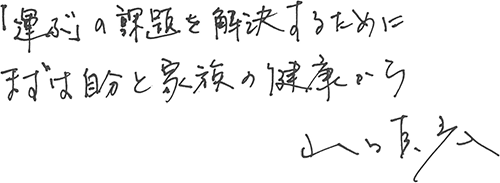 「運ぶ」の課題を解決するために
まずは自分と家族の健康から
山口真